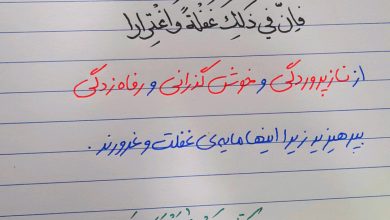 فَإِنَّ فِي ذَلِكَ غَفْلَةً وَاغْتِرارا
از نازپروردگی و خوش گذرانی و رفاه زدگی
بپرهیزید زیرا اینها مایه‌ی غفلت و غرورند.